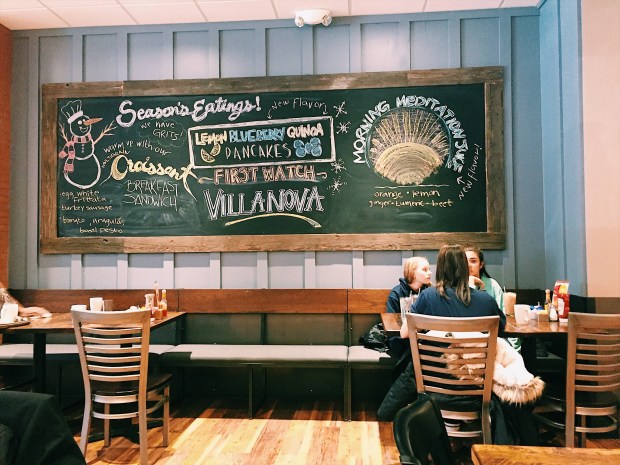 Season's Eatings!
we have
GRITS!
warm up with our
Croissant
BREAKFAST
SANDWICH
egg white
frittata
turkey sausage
tomato, arugula,
basil pesto
New Flavor
LEMON BLUEBERRY QUINOA
PANCAKES
FIRST WATCH
VILLANOVA
MORNING MEDITATION JUICE
New flavor!
orange • lemon
ginger • tumeric • beet